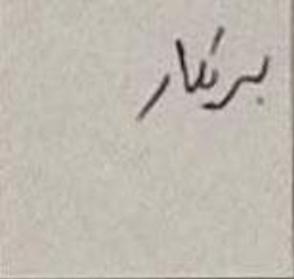 برکار